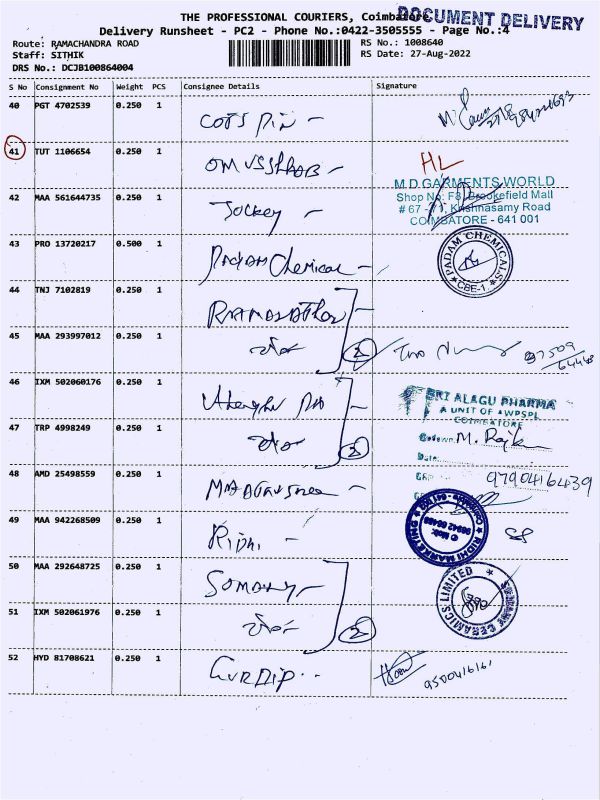 THE PROFESSIONAL COURIERS, Coimbatore
DOCUMENT DELIVERY
Delivery Runsheet - PC2 - Phone No.:0422-3505555 - Page No.:4
Route: RAMACHANDRA ROAD
RS No.: 1008640
Staff: SITHIK
RS Date: 27-Aug-2022
DRS No.: DCJB100864004
S No Consignment No Weight PCS Consignee Details Signature
40 PGT 4702539 0.250 1
41 TUT 1106654 0.250 1 HL
42 MAA 561644735 0.250 1 Jockey
M.D.GARMENTS WORLD
Shop No: F8, Brookefield Mall
# 67 - 71, Krishnasamy Road
COIMBATORE - 641 001
43 PRO 13720217 0.500 1 Padam Chemical
PADAM CHEMICALS
CBE-1
44 TNJ 7102819 0.250 1
45 MAA 293997012 0.250 1 2
46 IXM 502060176 0.250 1
SRI ALAGU PHARMA
A UNIT OF AWPSPL
COIMBATORE
47 TRP 4998249 0.250 1 2
Godown M. Raj
Date
48 AMD 25498559 0.250 1
9790416439
49 MAA 942268509 0.250 1 Ridhi
RIDHI MARKETING
50 MAA 292648725 0.250 1 Somany
SOMANY CERAMICS LIMITED
51 IXM 502061976 0.250 1 2
52 HYD 81708621 0.250 1 Gurdip
9500416161